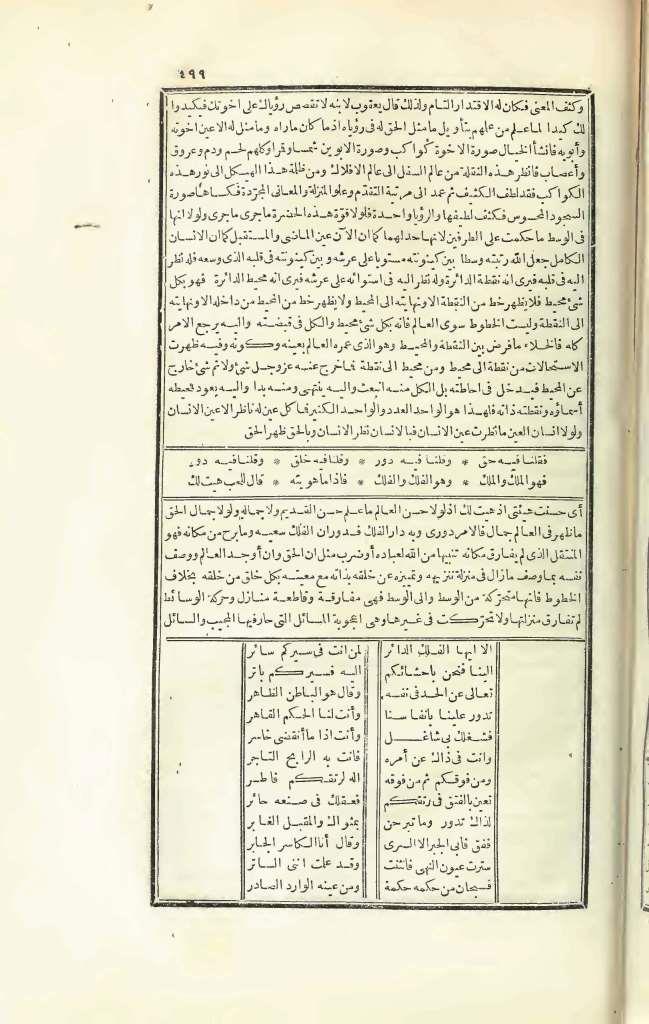 ٤٩٩
وكثف المعنى فكان له الاقتدار التام ولذلك قال يعقوب لابنه لا تقصص رؤياك على اخوتك فيكيدوا
لك كيدا لما علم من علمهم بتأويل ما مثل الحق له فى رؤياه اذ ما كان ما رآه وما مثل له الا عين اخوته
وأبويه فانشأ الخيال صورة الاخوة كواكب وصورة الابوين شمسا وقمرا وكلهم لحم ودم وعروق
وأعصاب فانظر هذه النقلة من عالم السفل الى عالم الافلاك ومن ظلمة هذا الهيكل الى نور هذه
الكواكب فقد لطف الكثيف ثم عمد الى مرتبة التقدم وعلو المنزلة والمعانى المجردة فكساها صورة
السجود المحسوس فكثف لطيفها والرؤيا واحدة فلولا قوة هذه الحضرة ما جرى ما جرى ولولا انها
فى الوسط ما حكمت على الطرفين لانها حد لهما كما ان الآن عين الماضى والمستقبل كما ان الانسان
الكامل جعل الله رتبته وسطا بين كينونته مستويا على عرشه وبين كينونته فى قلبه الذى وسعه فله نظر
اليه فى قلبه فيرى انه نقطة الدائرة وله نظر اليه فى استوائه على عرشه فيرى انه محيط الدائرة فهو بكل
شئ محيط فلا يظهر خط من النقطة الا ونهايته الى المحيط ولا يظهر خط من المحيط من داخله الا ونهايته
الى النقطة وليست الخطوط سوى العالم فانه بكل شئ محيط والكل فى قبضته واليه يرجع الامر
كله فالخلاء ما فرض بين النقطة والمحيط وهو الذى عمره العالم بعينه وكونه وفيه ظهرت
الاستحالات من نقطة الى محيط ومن محيط الى نقطة فما خرج عنه عز وجل شئ ولا ثم شئ خارج
عن المحيط فيدخل فى احاطته بل الكل منه انبعث واليه ينتهى ومنه بدا واليه يعود فمحيطه
أسماؤه ونقطته ذاته فلهذا هو الواحد العدد والواحد الكثير فما كل عين له ناظر الا عين الانسان
ولولا انسان العين ما نظرت عين الانسان فبالانسان نظر الانسان وبالحق ظهر الحق
فقلنا فيه حق * وقلنا فيه دور * وقلنا فيه خلق * وقلنا فيه دور
فهو الملك والملك * وهو الفلك والفلك * فاذا ما هويته * قال للصب هيت لك
أى حسنت هيئتى اذ هيت لك اذ لولا حسن العالم ما علم حسن القديم ولا جماله ولولا جمال الحق
ما ظهر فى العالم جمال فالامر دورى وبه دار الفلك فدوران الفلك سعيه وما برح من مكانه فهو
المنتقل الذى لم يفارق مكانه تنبيها من الله لعباده أو ضرب مثل ان الحق وان أوجد العالم ووصف
نفسه بما وصف ما زال فى منزلة تنزيهه وتميزه عن خلقه بذاته مع معيته بكل خلق من خلقه بخلاف
الخطوط فانها متحركة من الوسط والى الوسط فهى مفارقة وقاطعة منازل وحركة الوسائط
لم تفارق منزلتها ولا تحركت فى غيرها وهى اعجوبة المسائل التى حار فيها المجيب والسائل
الا ايها الفلك الدائر لمن انت فى سيركم سائر
الينا فنحن باحشائكم اليه فسيركم باتر
تعالى عن الحد فى نفسه وقال هو الباطن الظاهر
تدور علينا بانفاسنا وأنت لنا الحكم القاهر
فشغلك بى شاغل وأنت اذا ما انقضى خاسر
وانت فى ذاك عن أمره فانت به الرابح التاجر
ومن فوقكم ثم من فوقه اله لرتقكم فاطر
تعين بالفتق فى رتقكم فعقلك فى صنعه حائر
لذاك تدور وما تبرحن بمثواك والمقبل الغابر
فقف فابى الجبر الا السرى وقال أنا الكاسر الجابر
سترت عيون النهى فانثنت وقد علمت اننى الساتر
فسبحان من حكمه حكمة ومن عينه الوارد الصادر